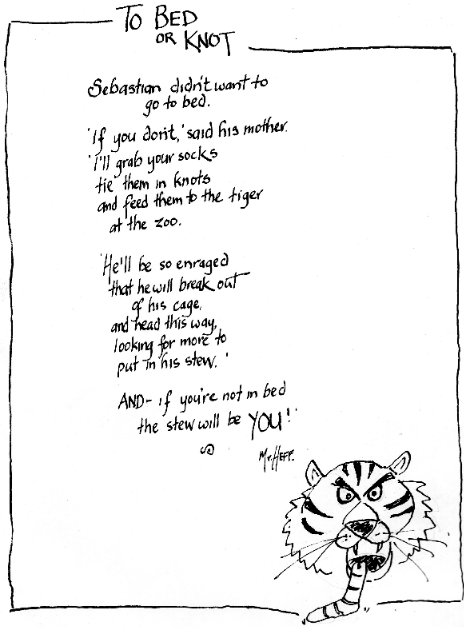 To Bed
or Knot
Sebastian didn't want to
go to bed.
'If you don't,' said his mother.
'I'll grab your socks
tie them in knots
and feed them to the tiger
at the zoo.
'He'll be so enraged
that he will break out
of his cage,
and head this way,
looking for more to
put in his stew.'
AND- if you're not in bed
the stew will be YOU!'
Mr. Heff.